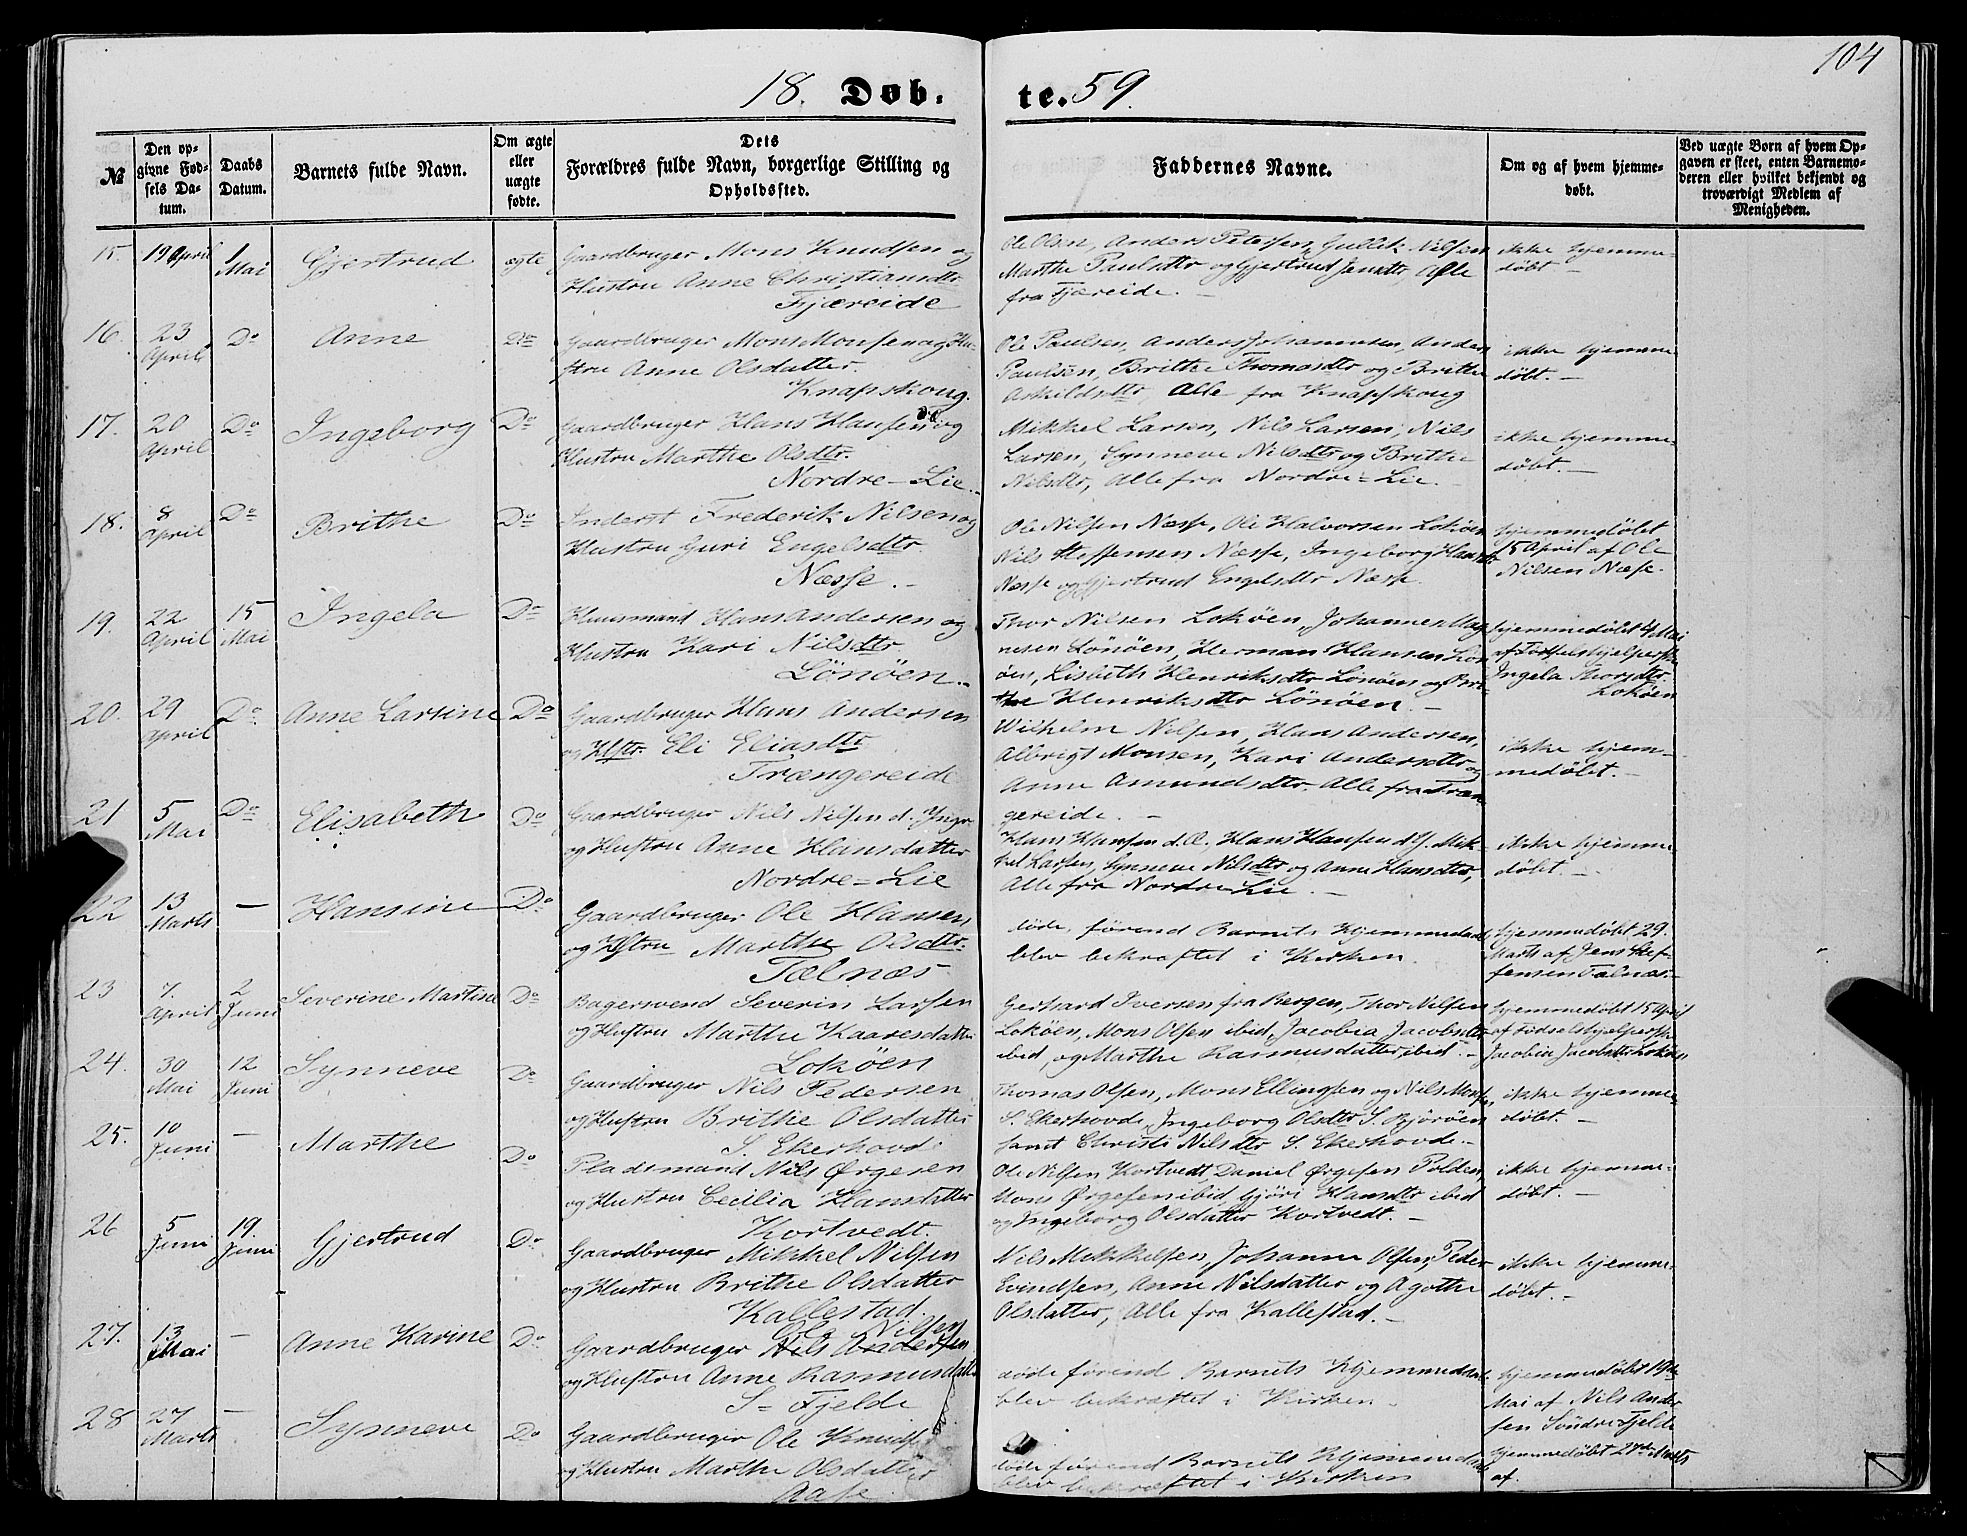 104
18. Døb-
te. 59.
№
Den op-
givne Fød-
sels Da-
tum.
Daabs
Datum.
Barnets fulde Navn.
Om ægte
eller
uægte
fødte.
Dets
Forældres fulde Navn, borgerlige Stilling og
Opholdssted.
Faddernes Navne.
Om og af hvem hjemme-
døbt.
Ved uægte Børn af hvem Op-
gaven er skeet, enten Barnemo-
deren eller hvilket bekjendt og
troværdigt Medlem af
Menigheden.
15. 19 April 1 Mai Gjertrud ægte
Gaardbruger Mons Knudsen og
Hustru Anne Christiansdtr
Fjæreide
Ole Olsen, Anders Petersen, Gullik Nilsen
Marthe Paulsdtr og Gjertrud Jensdtr, Alle
fra Fjæreide. –
ikke hjemme-
døbt –
16. 23 April Do Anne Do
Gaardbruger Mons Monsen og Hu-
stru Anne Olsdatter.
Knapskoug.
Ole Paulsen, Anders Johannesen, Anders
Paulsen, Brithe Thomasdtr og Brithe
Askildsdtr, Alle fra Knapskoug
ikke hjemme
døbt. –
17. 20 April Do Ingeborg Do
Gaardbruger Hans Hansen og
Hustru Marthe Olsdtr.
Nordre-Lie. –
Mikkel Larsen, Nils Larsen, Nils
Larsen, Synneve Nilsdtr og Brithe
Nilsdtr, Alle fra Nordre-Lie. –
ikke hjemme-
døbt. –
18. 8 April Do Brithe Do
Inderst Frederik Nilsen og
Hustru Guri Engelsdtr
Næsse. –
Ole Nilsen Næsse, Ole Halvorsen Lokøen
Nils Steffensen Næsse, Ingeborg Hansdtr
Næsse og Gjertrud Engelsdtr Næsse.
hjemmedøbt
15 April af Ole
Nilsen Næsse.
19. 22 April 15 Mai Ingela Do
Huusmand Hans Andersen og
Hustru Kari Nilsdtr
Lönöen. –
Thor Nilsen Lokøen, Johannes Mag
nesen Lönöen, Herman Hansen Lön
öen, Lisbeth Henriksdtr Lönöen og Bri-
the Henriksdtr Lönöen. –
hjemmedøbt 4 Mai
af Födselshjelpersk
Ingela Thorsdtr
Lokøen
20. 29 April Do Anne Larsine Do
Gaardbruger Hans Andersen
og Hstr. Eli Eliasdtr
Trængereide
Wilhelm Nilsen, Hans Andersen,
Albrigt Monsen, Kari Andersdtr og
Anne Amundsdtr. Alle fra Træn
gereide. –
ikke hjem-
medøbt. –
21 5 Mai Do Elisabeth Do
Gaardbruger Nils Nilsen d. Yngr
og Hustru Anne Hansdatter
Nordre-Lie
Hans Hansen d.Æ. Hans Hansen d.Y. Mik-
kel Larsen, Synneve Nilsdtr og Anne Hansdtr,
Alle fra Nordre Lie. –
ikke hjemme
døbt. –
22 13 Marts – Hansine Do
Gaardbruger Ole Hansen
og Hstru Marthe Olsdtr.
Tælnæs
døde, førend Barnets Hjemmedaab
blev bekræftet i Kirken.
hjemmedøbt 29.
Marts af Jens Stef-
fensen Tælnæs. –
23 7. April 2 Juni Severine Martine Do
Bagersvend Severin Larsen
og Hustru Marthe Kaaresdatter
Lokøen
Gerhard Iversen fra Bergen, Thor Nilsen
Lokøen, Mons Olsen ibid, Jacobia Jacobsdtr
ibid, og Marthe Rasmusdatter ibid. –
hjemmedøbt 15 April
af Födselshjelpersk
Jacobia Jacobsdtr Lokøen
24. 30 Mai 12 Juni Synneve Do
Gaardbruger Nils Pedersen
og Hustru Brithe Olsdatter
S. Ekerhovde
Thomas Olsen, Mons Ellingsen og Nils Monsen
S. Ekerhovde, Ingeborg Olsdtr S. Björöen
samt Christi Nilsdtr S. Ekerhovde. –
ikke hjemme-
døbt. –
25. 10 Juni – Marthe Do
Pladsmand Nils Ørgesen
og Hustru Cecilia Hansdatter
Kortvedt.
Ole Nilsen Kortvedt, Daniel Ørgesen Polden,
Mons Ørgesen ibid, Gjöri Hansdtr ibid
og Ingeborg Olsdatter Kortvedt. –
ikke hjemme-
døbt. –
26 5 Juni 19. Juni Gjertrud Do
Gaardbruger Mikkel Nilsen
og Hustru Brithe Olsdatter
Kallestad.
Nils Mikkelsen, Johanne Olsen, Peder
Evindsen, Anne Nilsdatter og Agathe
Olsdatter, Alle fra Kallestad. –
ikke hjemme-
døbt. –
27. 13 Mai – Anne Karine Do
Ole Nilsen
Gaardbruger Nils Andersen
og Hustru Anne Rasmusdatter
S. Fjelde
døde førend Barnets Hjemmedaab
blev bekræftet i Kirken.
hjemmedøbt 19de
Mai af Nils Ander
sen Söndre Fjelde
28 27 Marts – Synneve Do
Gaardbruger Ole Knudsen
og Hustru Marthe Olsdatter
Aase
døde førend Barnets Hjemmedaab
blev bekræftet i Kirken
hjemmedøbt 27de Marts
af.